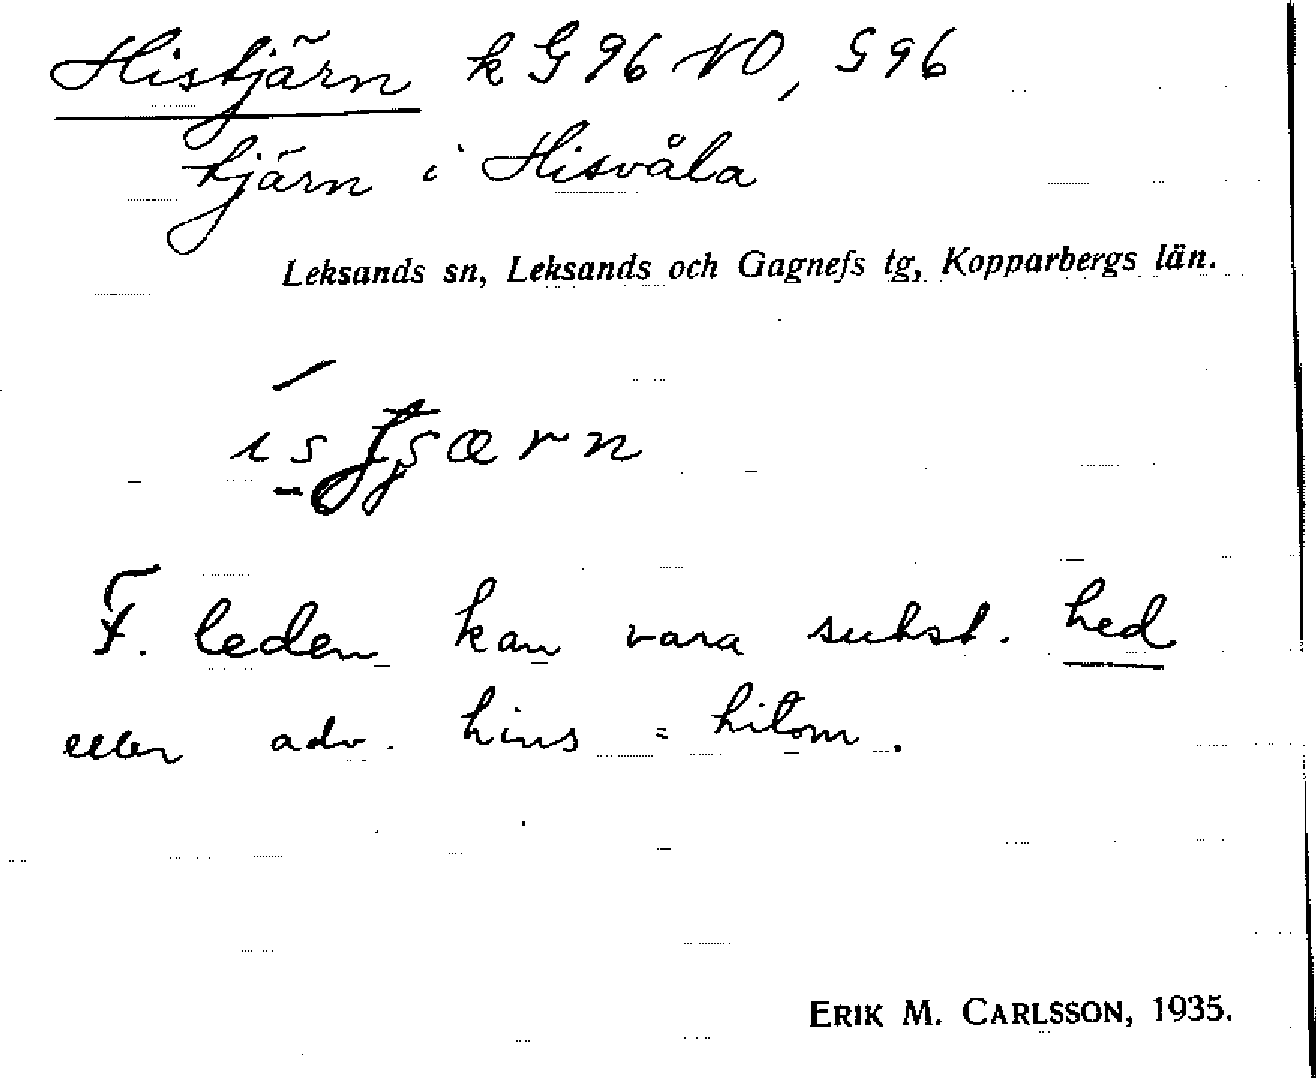 Histjärn k G 96 NO, G 96
tjärn i Hisvåla
Leksands sn, Leksands och Gagnefs tg, Kopparbergs län.
F. leden kan vara subst. hed
eller adv. hins = hitom.
ERIK M. CARLSSON, 1935.